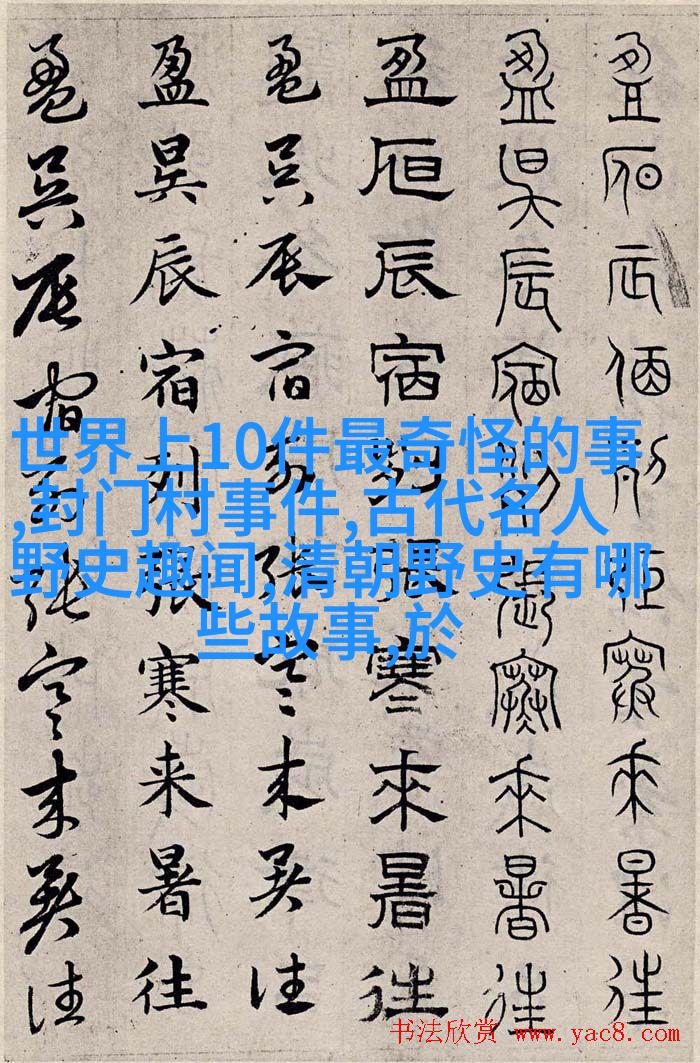 盈昃辰宿列張寒來暑往
盈昃辰宿列張寒來暑往
盈昃辰宿列張寒來暑往
盈昃辰宿列張寒来暑往
盈昃辰宿列張寒来暑往
盈昃辰宿列張寒来暑往
世界上10件最奇怪的事
,封门村事件,古代名人
野史趣闻,清朝野史有哪
些故事,於
书法欣赏 www.yac8.com